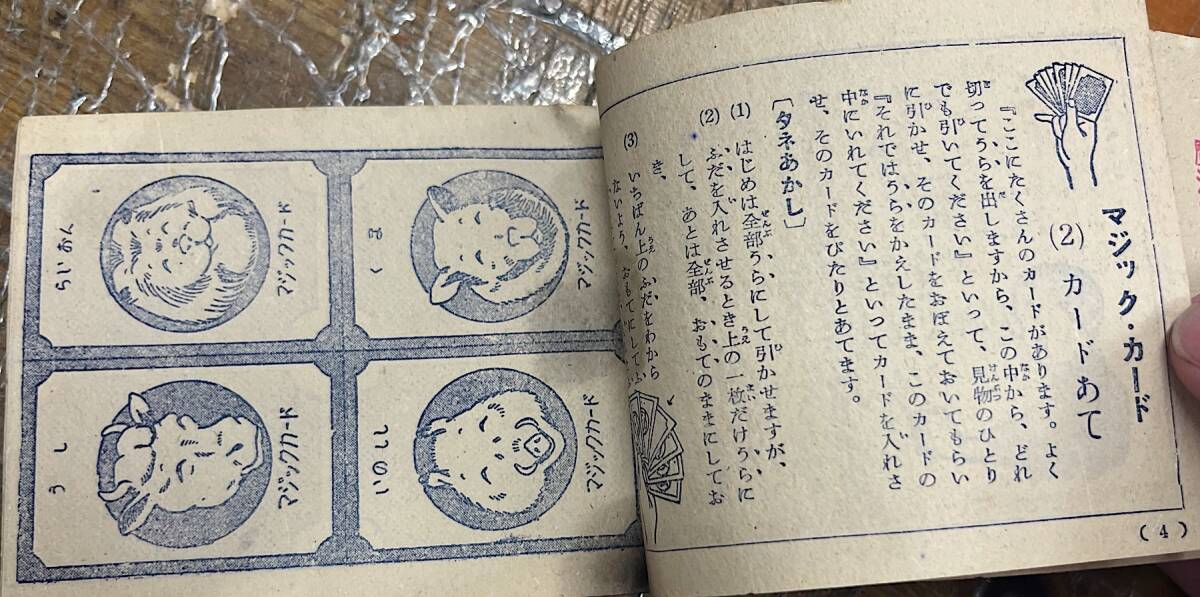 マジック・カード
(2) カードあて
『ここにたくさんのカードがあります。よく
切ってうらを出しますから、この中から、どれ
でも引いてください』といって、見物のひとり
に引かせ、そのカードをおぼえておいてもらい
『それではうらをかえしたまま、このカードの
中にいれてください』といってカードを入れさ
せ、そのカードをぴたりとあてます。
〔タネあかし〕
(1) はじめは全部うらにして引かせますが、
(2) ふだを入れさせるとき上の一枚だけうらに
して、あとは全部、おもてのままにしてお
き、
(3) いちばん上のふだをわから
ないよう、おもてにしてふ
(4)
マジックカード
くま
マジックカード
らいおん
マジックカード
いのしし
マジックカード
うし